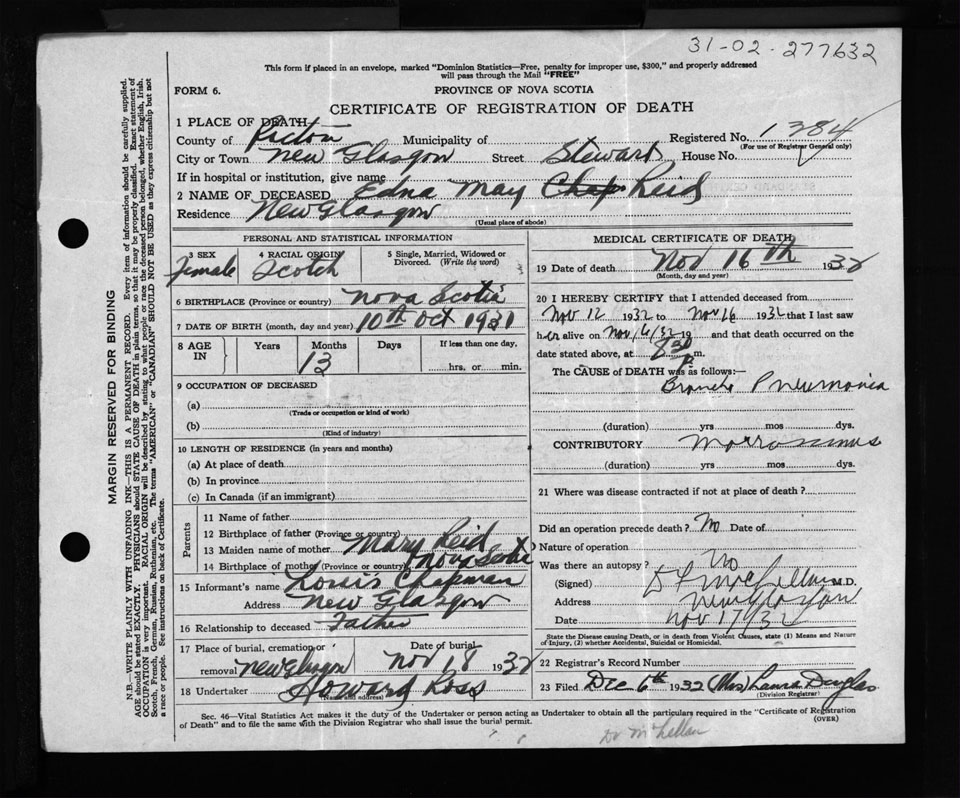 31-02-277632
This form if placed in an envelope, marked "Dominion Statistics—Free, penalty for improper use, $300," and properly addressed
will pass through the Mail "FREE"
FORM 6.
PROVINCE OF NOVA SCOTIA
CERTIFICATE OF REGISTRATION OF DEATH
1 PLACE OF DEATH
County of Pictou Municipality of Registered No. 1384
(For use of Registrar General only)
City or Town New Glasgow Street Stewart House No.
If in hospital or institution, give name
2 NAME OF DECEASED Edna May Chap Reid
Residence New Glasgow
(Usual place of abode)
PERSONAL AND STATISTICAL INFORMATION
3 SEX Female
4 RACIAL ORIGIN Scotch
5 Single, Married, Widowed or Divorced. (Write the word)
6 BIRTHPLACE (Province or country) Nova Scotia
7 DATE OF BIRTH (month, day and year) 10th Oct 1931
8 AGE IN Years Months Days If less than one day,
13 hrs. or min.
9 OCCUPATION OF DECEASED
(a)
(Trade or occupation or kind of work)
(b)
(Kind of industry)
10 LENGTH OF RESIDENCE (in years and months)
(a) At place of death
(b) In province
(c) In Canada (if an immigrant)
Parents
11 Name of father
12 Birthplace of father (Province or country)
13 Maiden name of mother Mary Reid
14 Birthplace of mother (Province or country) Nova Scotia
15 Informant's name Louis Chapman
Address New Glasgow
16 Relationship to deceased Father
17 Place of burial, cremation or removal New Glasgow
Date of burial Nov 18 1932
18 Undertaker Howard Ross
(Name and address)
MEDICAL CERTIFICATE OF DEATH
19 Date of death Nov 16th 1932
(Month, day and year)
20 I HEREBY CERTIFY that I attended deceased from
Nov 12 1932 to Nov 16 1932 that I last saw
her alive on Nov 16/32 19 and that death occurred on the
date stated above, at 8 30 P m.
The CAUSE of DEATH was as follows:—
Broncho Pneumonia
(duration) yrs mos dys.
CONTRIBUTORY
(duration) yrs mos dys.
21 Where was disease contracted if not at place of death?
Did an operation precede death? No Date of
Nature of operation
Was there an autopsy? No
(Signed) McLellan M.D.
Address New Glasgow
Date Nov 17/32
State the Disease causing Death, or in death from Violent Causes, state (1) Means and Nature
of Injury, (2) whether Accidental, Suicidal or Homicidal.
22 Registrar's Record Number
23 Filed Dec 6th 1932 (Mrs) Laura Douglas
(Division Registrar)
Sec. 46—Vital Statistics Act makes it the duty of the Undertaker or person acting as Undertaker to obtain all the particulars required in the "Certificate of Registration
of Death" and to file the same with the Division Registrar who shall issue the burial permit.
(OVER)
Dr McLellan
MARGIN RESERVED FOR BINDING
N.B.—WRITE PLAINLY WITH UNFADING INK—THIS IS A PERMANENT RECORD. Every item of information should be carefully supplied.
AGE should be stated EXACTLY. PHYSICIANS should STATE CAUSE OF DEATH in plain terms, so that it may be properly classified. Exact statement of
OCCUPATION is very important. RACIAL ORIGIN will be described by stating to what people or race the deceased person belonged, whether English, Irish,
Scotch, French, German, Russian, Ruthenian, etc. The terms "AMERICAN" or "CANADIAN" SHOULD NOT BE USED as they express citizenship but not
a race or people. See instructions on back of Certificate.